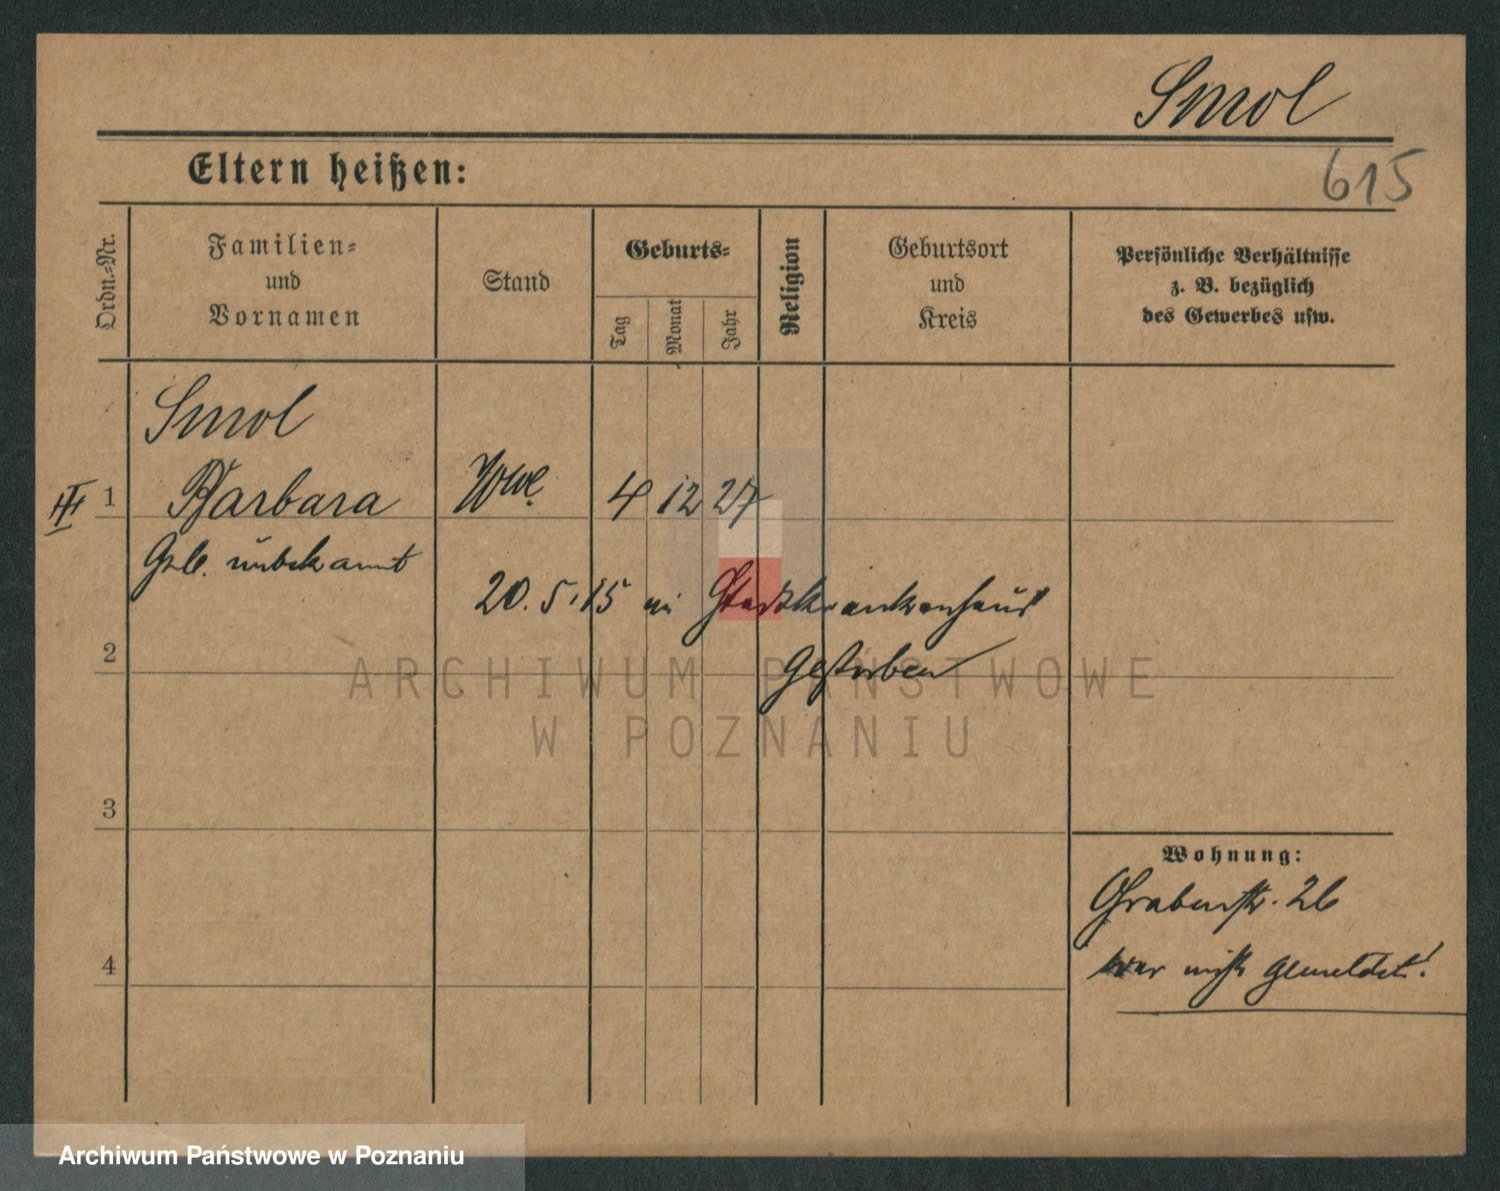 Smol
Eltern heißen:
615
Ordn.=Nr.
Familien=
und
Vornamen
Stand
Geburts=
Tag
Monat
Jahr
Religion
Geburtsort
und
Kreis
Persönliche Verhältnisse
z. B. bezüglich
des Gewerbes usw.
Smol
III 1 Barbara Wwe. 4 12 27
Geb. unbekannt
20.5.15 im Stadtkrankenhaus
gestorben
2
ARCHIWUM PAŃSTWOWE
W POZNANIU
3
Wohnung:
Grabenstr. 26
4
war nicht gemeldet!
Archiwum Państwowe w Poznaniu